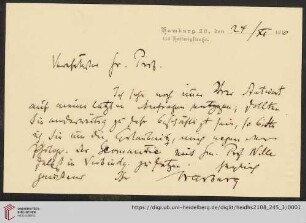 Hamburg 20, den 24/XI.
114 Heilwigstraße.
Verehrter Hr. Prof.
Ich sehe noch immer Ihrer Antwort
auf meine letzten Anfragen entgegen; sollten
Sie anderweitig zu sehr beschäftigt sein, so bitte
ich Sie um die Erlaubnis, mich wegen der
Photogr. der Geomantie mit Hrn. Prof. Wille
selbst in Verbindg. zu setzen.
Ihr Warburg
https://digi.ub.uni-heidelberg.de/diglit/heidhs2108_245_3/0001
© Universitätsbibliothek Heidelberg